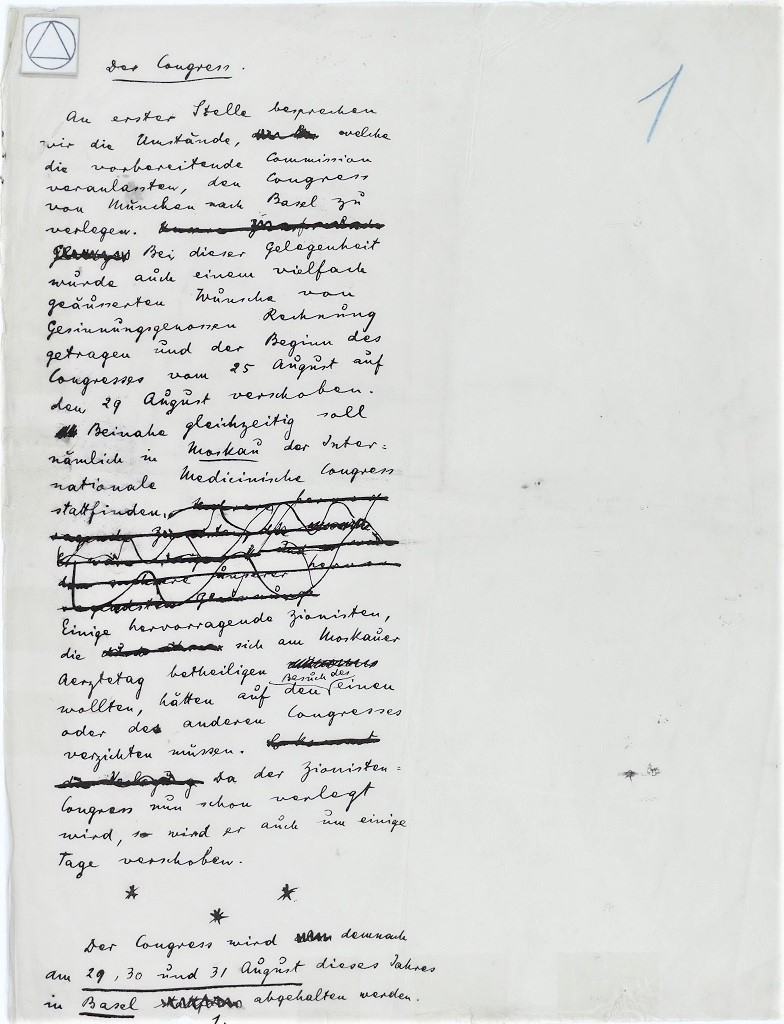 Der Congress.
1
An erster Stelle besprechen
wir die Umstände, welche
die vorbereitende Commission
veranlassten, den Congress
von München nach Basel zu
verlegen.
Bei dieser Gelegenheit
wurde auch einem vielfach
geäusserten Wunsche von
Gesinnungsgenossen Rechnung
getragen und der Beginn des
Congresses vom 25 August auf
den 29 August verschoben.
Beinahe gleichzeitig soll
nämlich in Moskau der Inter=
nationale Medicinische Congress
stattfinden.
Einige hervorragende Zionisten,
die sich am Moskauer
Aerztetag betheiligen
Besuch des
wollten, hätten auf den einen
oder des anderen Congresses
verzichten müssen.
Da der Zionisten=
Congress nun schon verlegt
wird, so wird er auch um einige
Tage verschoben.
* * *
Der Congress wird demnach
am 29, 30 und 31 August dieses Jahres
in Basel abgehalten werden.
1.